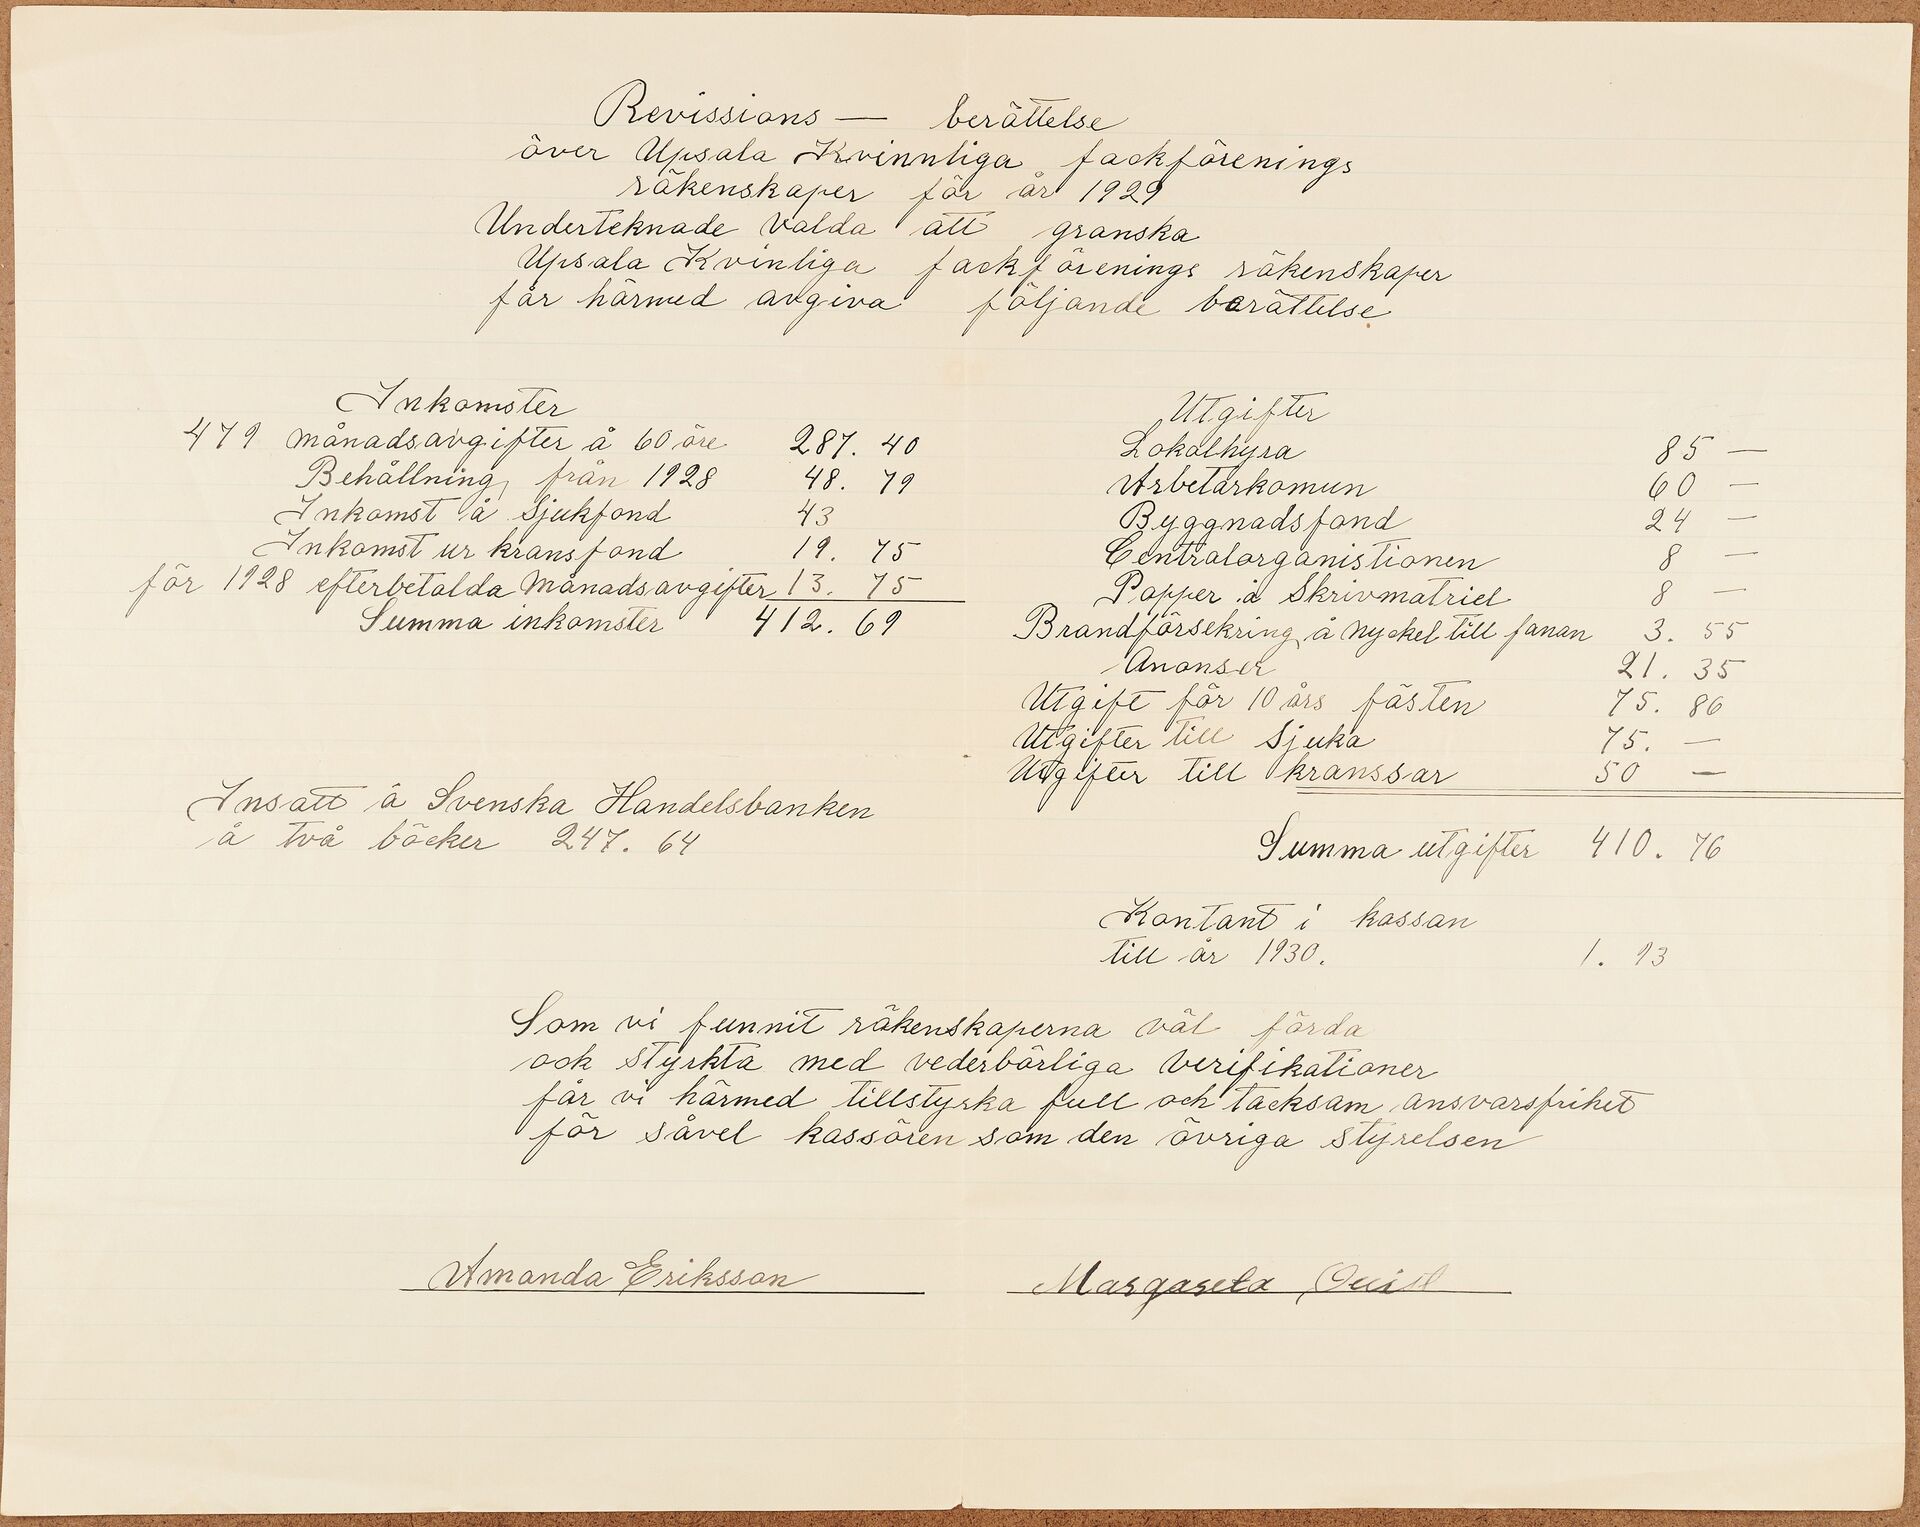 Revissions — berättelse
över Upsala Kvinnliga fackförenings
räkenskaper för år 1929
Underteknade valda att granska
Upsala Kvinliga fackförenings räkenskaper
får härmed avgiva följande berättelse
Inkomster
479 månadsavgifter å 60 öre 287. 40
Behållning från 1928 48. 79
Inkomst å Sjukfond 43
Inkomst ur kransfond 19. 75
för 1928 efterbetalda Månadsavgifter 13. 75
Summa inkomster 412. 69
Insatt å Svenska Handelsbanken
å två böcker 247. 64
Utgifter
Lokalhyra 85 —
Arbetarkomun 60 —
Byggnadsfond 24 —
Centralorganistionen 8 —
Papper å Skrivmatriel 8 —
Brandförsekring å nyckel till fanan 3. 55
Anonser 21. 35
Utgift för 10 års fästen 75. 86
Utgifter till Sjuka 75. —
Utgifter till kranssar 50 —
Summa utgifter 410. 76
Kontant i kassan
till år 1930. 1. 93
Som vi funnit räkenskaperna väl förda
ock styrkta med vederbörliga verifikationer
får vi härmed tillstyrka full och tacksam ansvarsfrihet
för såvel kassören som den övriga styrelsen
Amanda Eriksson
Margareta Quist